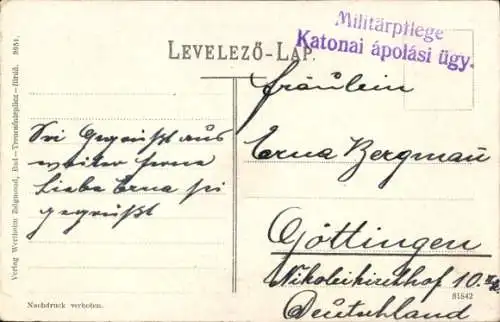 Militärpflege
Katonai ápolási ügy.
LEVELEZŐ-LAP.
Fräulein
Erna Bergmann
Göttingen
Nikoleikirchhof 10.
Deutschland
Sei Gegrüßt aus
weiter ferne
Liebe Erna sei
gegrüßt
Verlag Wertheim Zsigmond, Bad-Trencsénteplicz
Nachdruck verboten.